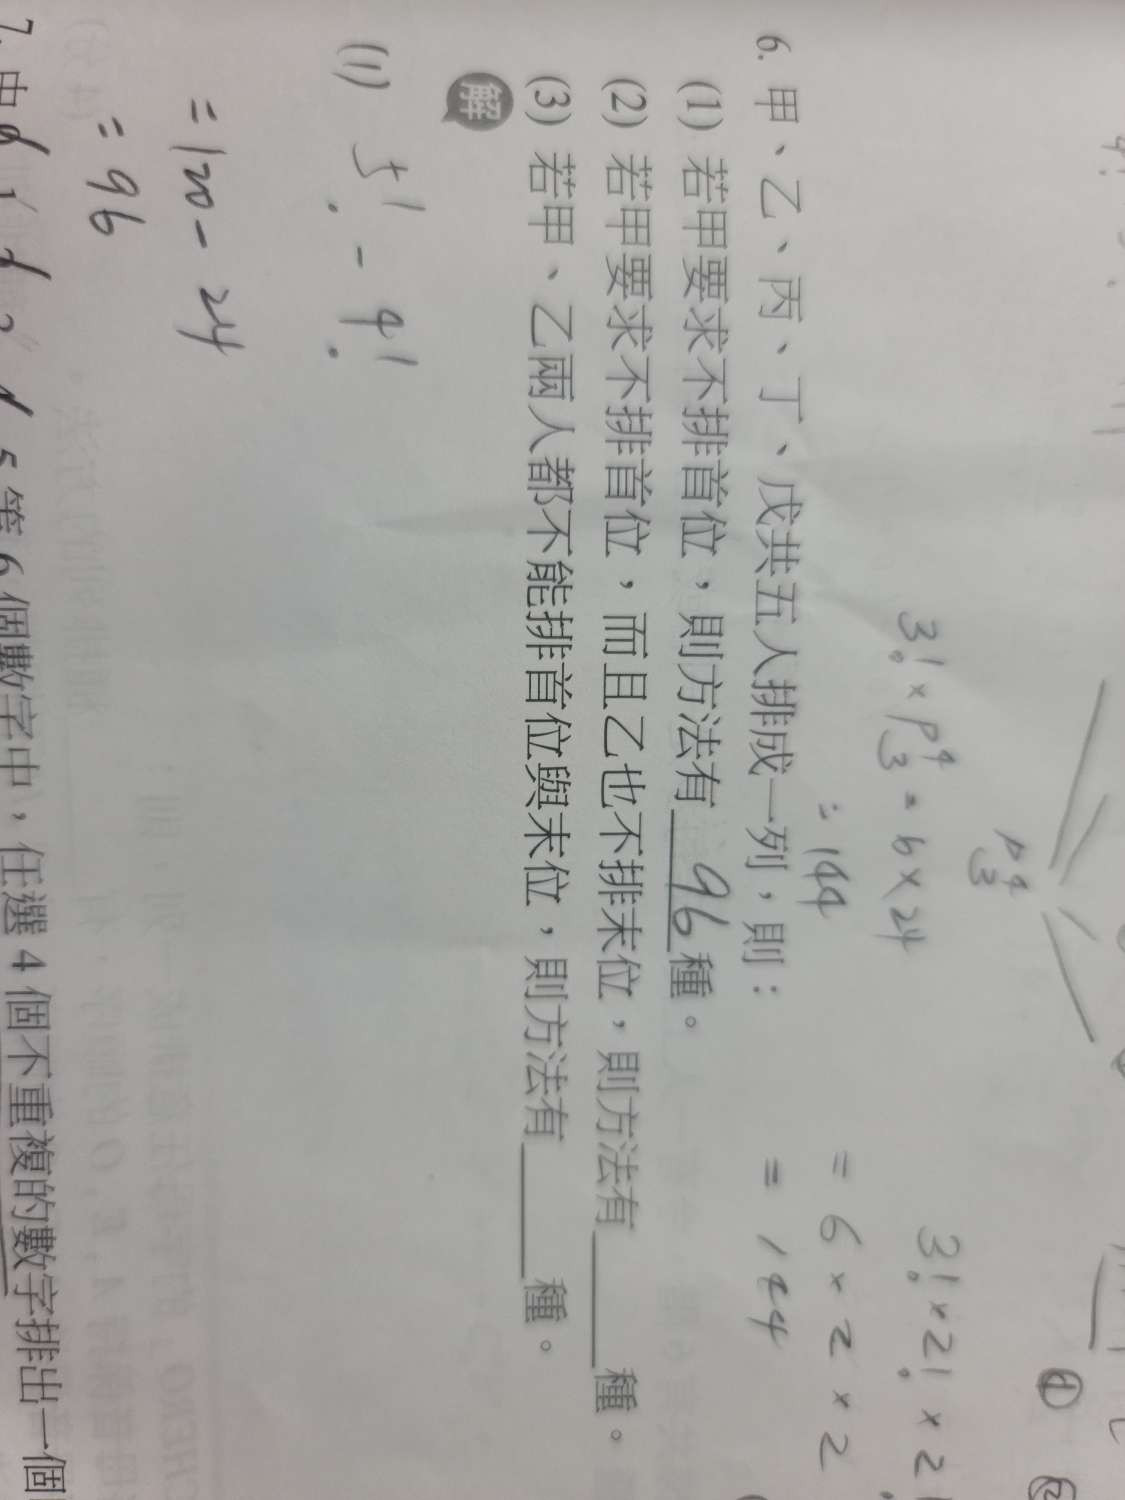 3! × P⁴₃ = 6 × 24
= 144
P⁴₃
3! × 2! × 2!
= 6 × 2 × 2
= 144
6. 甲、乙、丙、丁、戊共五人排成一列，則：
(1) 若甲要求不排首位，則方法有 96 種。
(2) 若甲要求不排首位，而且乙也不排末位，則方法有______種。
(3) 若甲、乙兩人都不能排首位與末位，則方法有______種。
解
(1) 5! - 4!
= 120 - 24
= 96
5 等 6 個數字中，任選 4 個不重複的數字排出一個